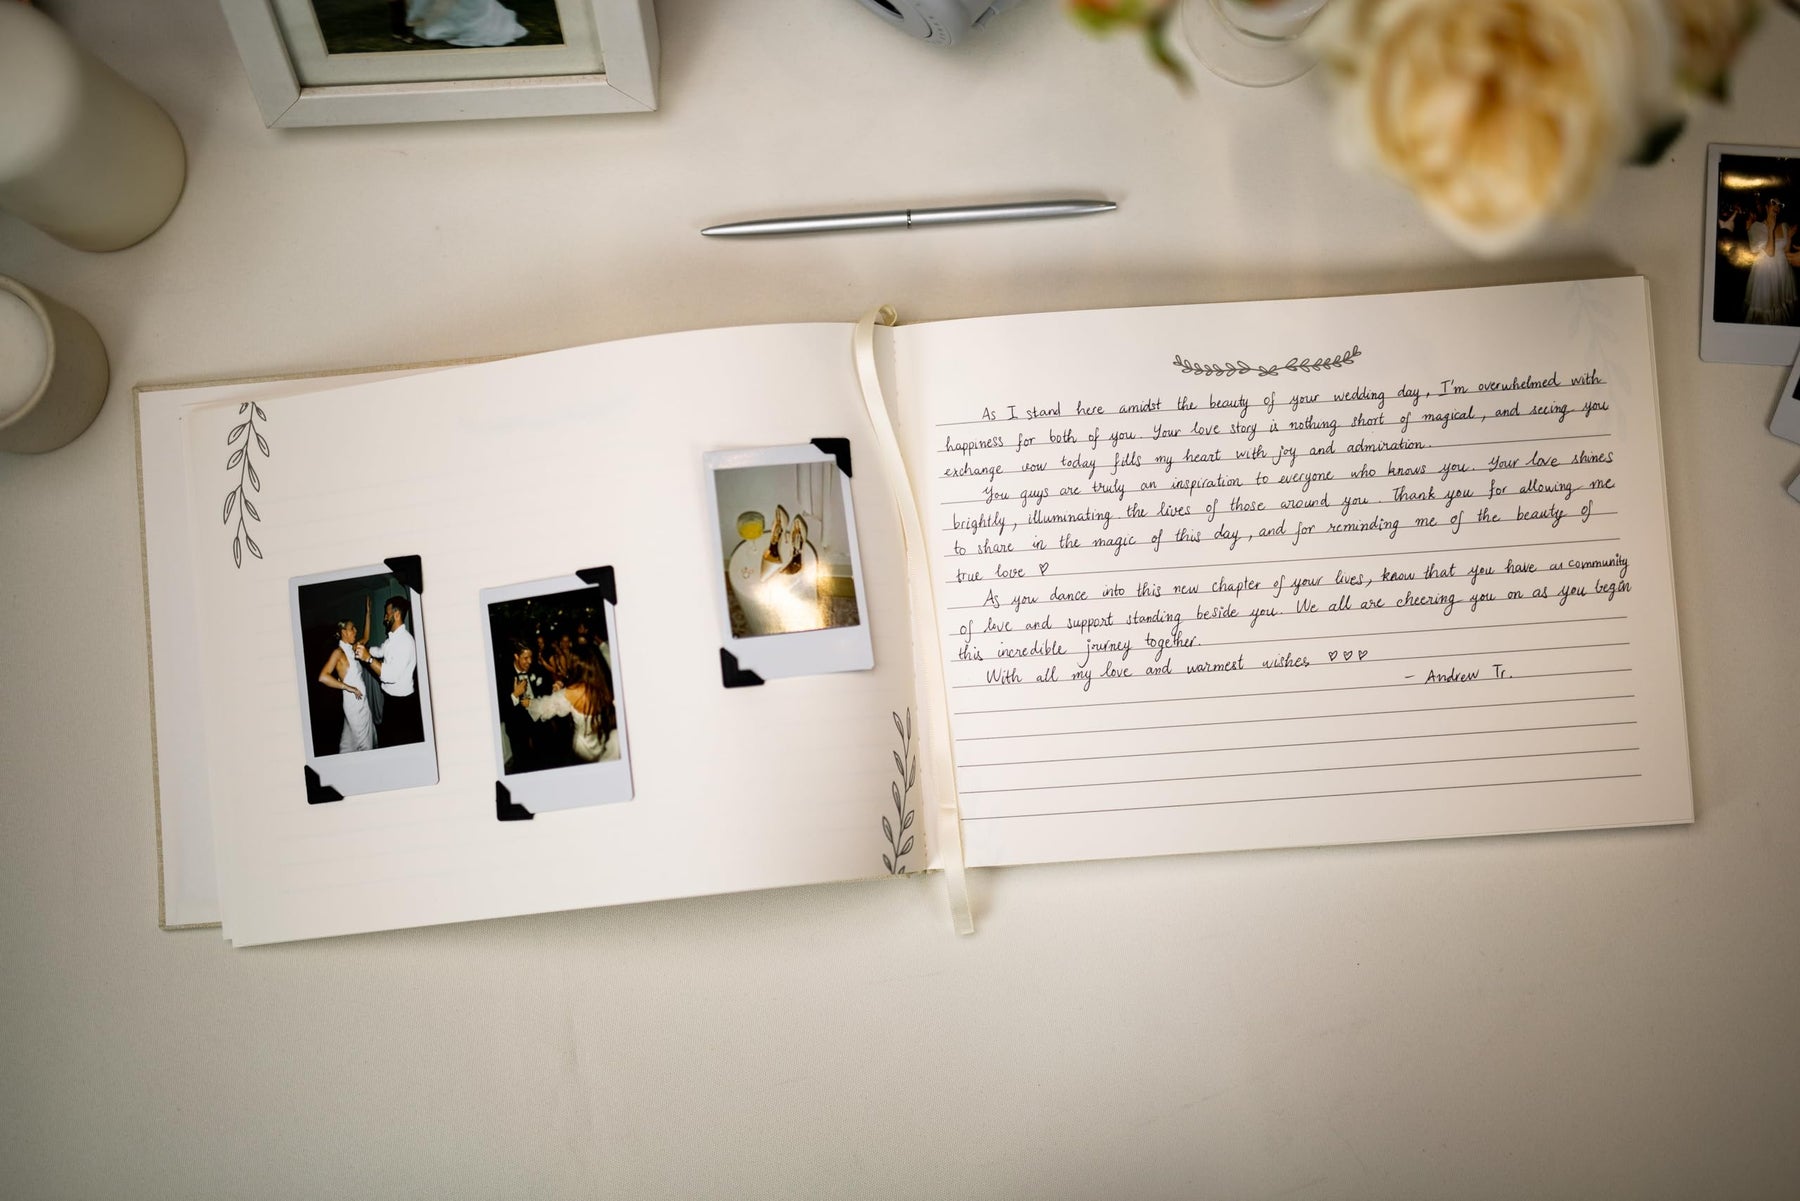 As I stand here amidst the beauty of your wedding day, I'm overwhelmed with
happiness for both of you. Your love story is nothing short of magical, and seeing you
exchange vow today fills my heart with joy and admiration.
You guys are truly an inspiration to everyone who knows you. Your love shines
brightly, illuminating the lives of those around you. Thank you for allowing me
to share in the magic of this day, and for reminding me of the beauty of
true love ♡
As you dance into this new chapter of your lives, know that you have a community
of love and support standing beside you. We all are cheering you on as you begin
this incredible journey together.
With all my love and warmest wishes ♡♡♡
- Andrew Tr.